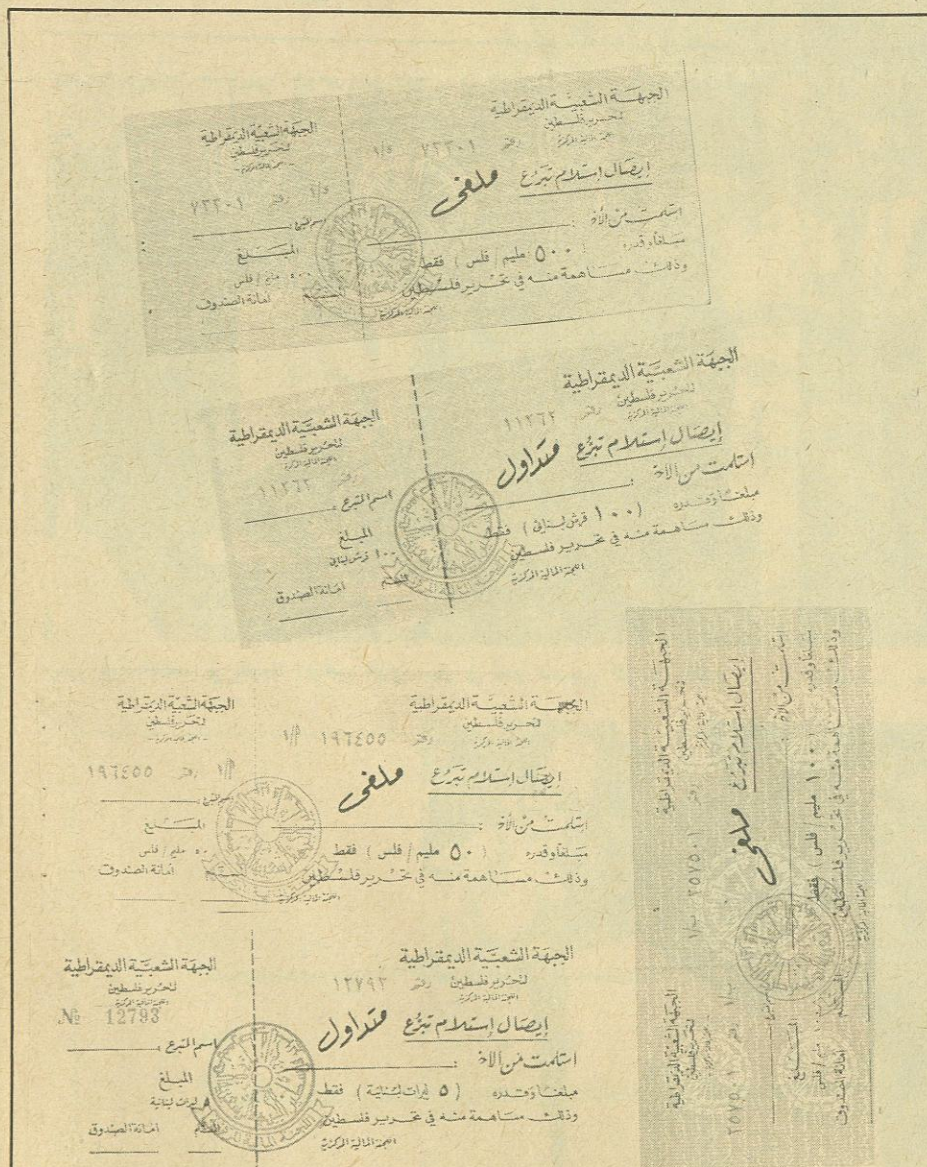 الجبهة الشعبية الديمقراطية
لتحرير فلسطين
اللجنة المالية المركزية
رقم ٧٣٣٠١ ٥/١
إيصال إستلام تبرع
ملغى
إستلمت من الأخ :
مبلغاً وقدره ( ٥٠٠ مليم / فلس ) فقط
وذلك مساهمة منه في تحرير فلسطين
اللجنة المالية المركزية
الجبهة الشعبية الديمقراطية
لتحرير فلسطين
- اللجنة المالية المركزية -
٥/١ رقم ٧٣٣٠١
اسم المتبرع :
المبلغ
٥٠٠ مليم / فلس
المستلم أمانة الصندوق
الجبهة الشعبية الديمقراطية
لتحرير فلسطين
اللجنة المالية المركزية
رقم ١١٢٦٢
إيصال إستلام تبرع
متداول
استلمت من الأخ :
مبلغاً وقدره ( ١٠٠ قرش لبناني ) فقط
وذلك مساهمة منه في تحرير فلسطين
اللجنة المالية المركزية
الجبهة الشعبية الديمقراطية
لتحرير فلسطين
اللجنة المالية المركزية
رقم ١١٢٦٢
اسم المتبرع :
المبلغ
١٠٠ قرش لبناني
المستلم امانة الصندوق
الجبهة الشعبية الديمقراطية
لتحرير فلسطين
اللجنة المالية المركزية
رقم ١٩٦٤٥٥ ١/أ
إيصال إستلام تبرع
ملغى
إستلمت من الأخ :
مبلغاً وقدره ( ٥٠ مليم / فلس ) فقط
وذلك مساهمة منه في تحرير فلسطين
اللجنة المالية المركزية
الجبهة الشعبية الديمقراطية
لتحرير فلسطين
- اللجنة المالية المركزية -
١/أ رقم ١٩٦٤٥٥
اسم المتبرع :
المبلغ
٥٠ مليم / فلس
المستلم أمانة الصندوق
الجبهة الشعبية الديمقراطية
لتحرير فلسطين
اللجنة المالية المركزية
رقم ٢٥٧٥٠١ ب/١
إيصال إستلام تبرع
ملغى
إستلمت من الأخ :
مبلغاً وقدره ( ١٠٠ مليم / فلس ) فقط
وذلك مساهمة منه في تحرير فلسطين
اللجنة المالية المركزية
الجبهة الشعبية الديمقراطية
لتحرير فلسطين
- اللجنة المالية المركزية -
ب/١ رقم ٢٥٧٥٠١
اسم المتبرع :
المبلغ
١٠٠ مليم / فلس
المستلم أمانة الصندوق
الجبهة الشعبية الديمقراطية
لتحرير فلسطين
اللجنة المالية المركزية
رقم ١٢٧٩٣
إيصال إستلام تبرع
متداول
استلمت من الأخ :
مبلغاً وقدره ( ٥ ليرات لبنانية ) فقط
وذلك مساهمة منه في تحرير فلسطين
اللجنة المالية المركزية
الجبهة الشعبية الديمقراطية
لتحرير فلسطين
اللجنة المالية المركزية
№ 12793
اسم المتبرع :
المبلغ
٥ ليرات لبنانية
المستلم امانة الصندوق